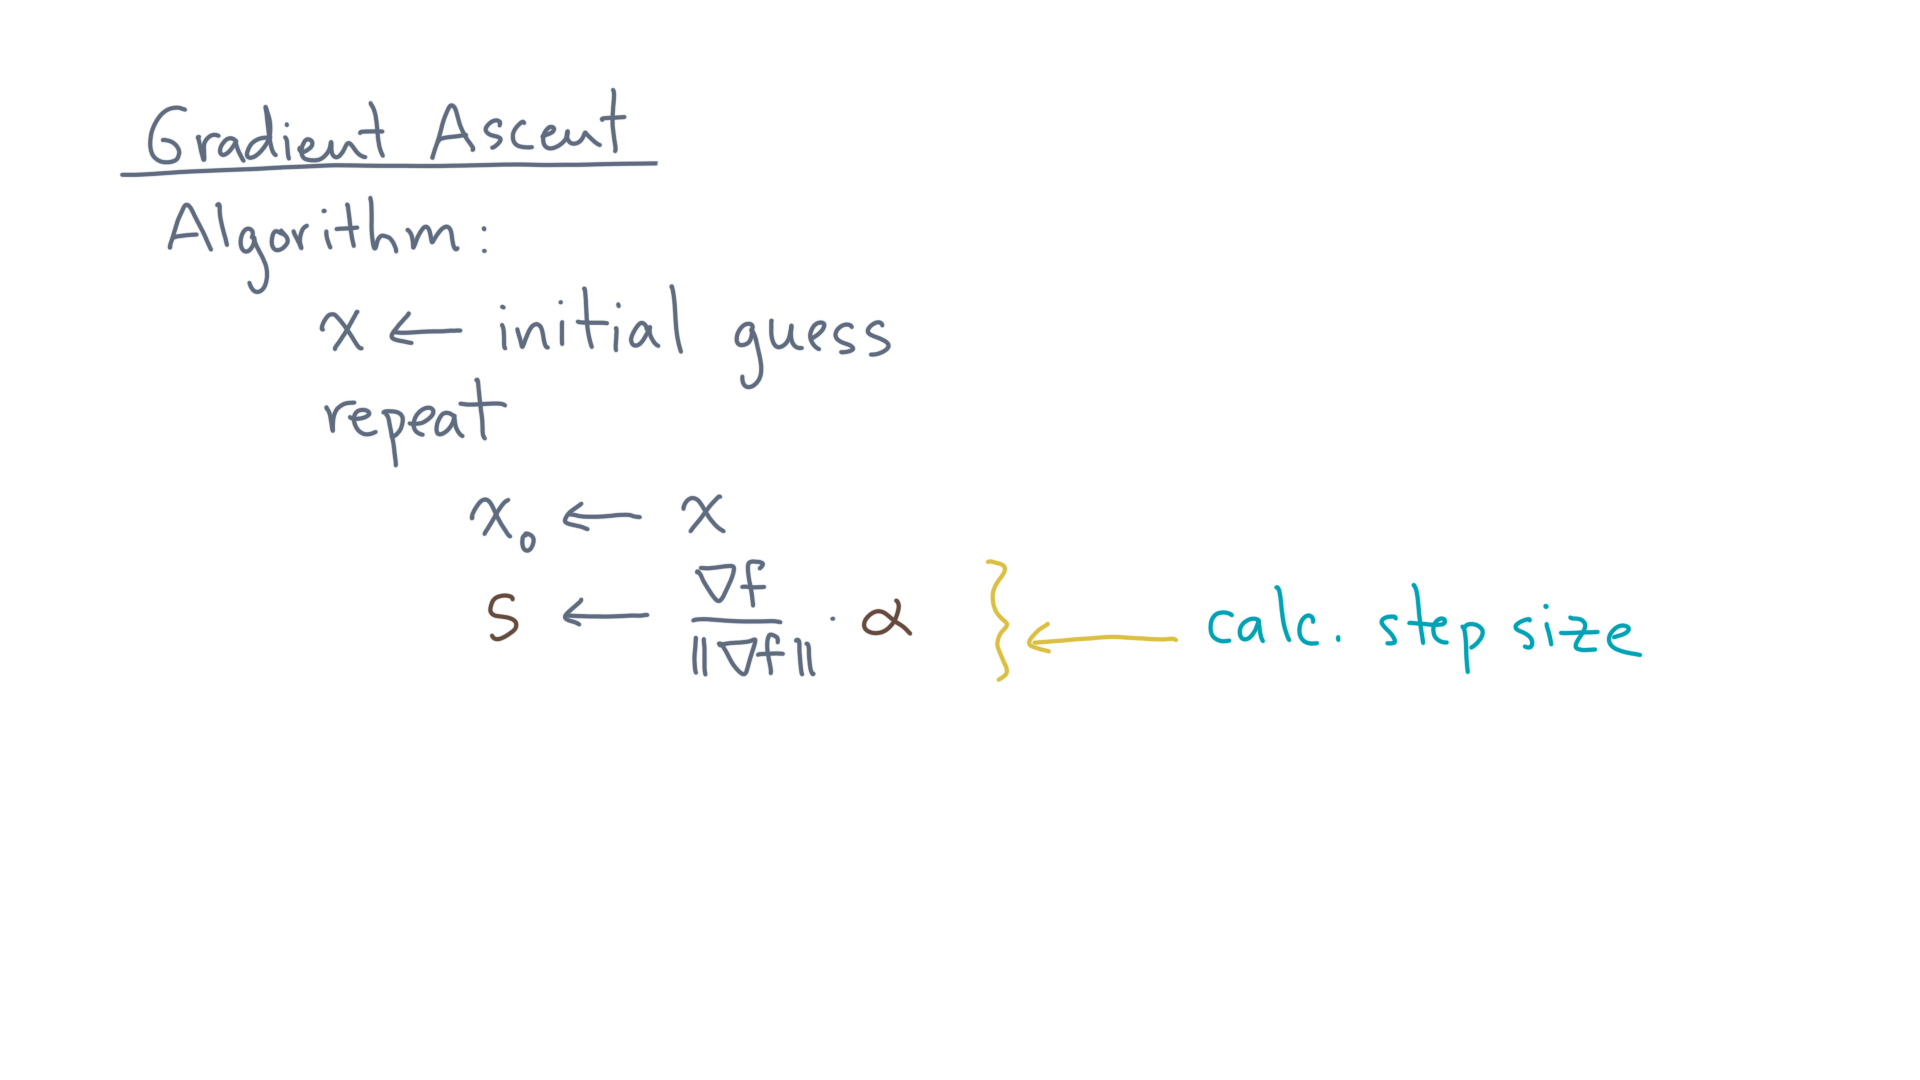 Gradient Ascent
Algorithm:
x ← initial guess
repeat
x₀ ← x
s ← ∇f / ‖∇f‖ · α } ← calc. step size